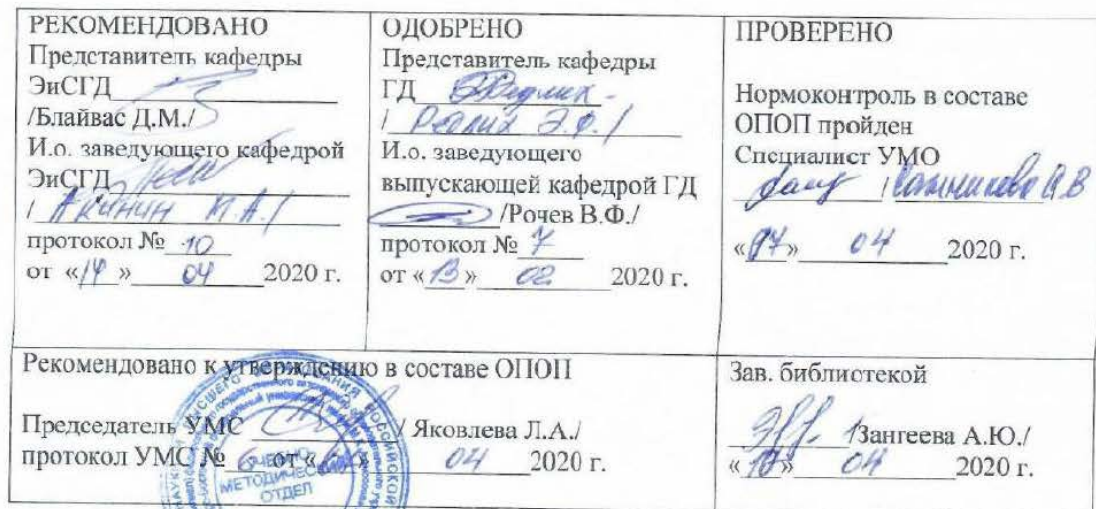 РЕКОМЕНДОВАНО
Представитель кафедры
ЭиСГД
/Блайвас Д.М./
И.о. заведующего кафедрой
ЭиСГД
/ Акинин М.А./
протокол № 10
от «14» 04 2020 г.
ОДОБРЕНО
Представитель кафедры
ГД
/ Редлих Э.Ф./
И.о. заведующего
выпускающей кафедрой ГД
/Рочев В.Ф./
протокол № 7
от «13» 02 2020 г.
ПРОВЕРЕНО
Нормоконтроль в составе
ОПОП пройден
Специалист УМО
/
«17» 04 2020 г.
Рекомендовано к утверждению в составе ОПОП
Председатель УМС / Яковлева Л.А./
протокол УМС № 6 от « » 04 2020 г.
УЧЕБНО
МЕТОДИЧЕСКИЙ
ОТДЕЛ
Зав. библиотекой
/Зангеева А.Ю./
«10» 04 2020 г.